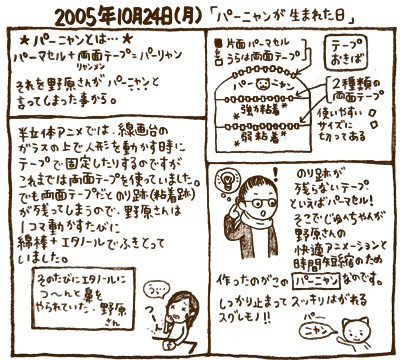 2005年10月24日(月)「パーニャンが生まれた日」
★パーニャンとは…★
パーマセル+両面テープ=パーリャン
リャンメン
それを野原さんがパーニャン?と
言ってしまった事から。
片面パーマセル
うらは両面テープ
テープ
おきば
パー ニャン
*強力粘着*
*弱粘着*
2種類の
両面テープ
使いやすい
サイズに
切ってある
半立体アニメでは、線画台の
ガラスの上で人形を動かす時に
テープで固定したりするのですが
これまでは両面テープを使っていました。
でも両面テープだとのり跡(粘着跡)
が残ってしまうので、野原さんは
1コマ動かすたびに
綿棒+エタノールでふきとって
いました。
そのたびにエタノールに
つ〜んと鼻を
やられていた、野原
さん
つーん
のり跡が
残らないテープ
といえばパーマセル!
そこでじゅんちゃんが
野原さんの
快適アニメーションと
時間短縮のため
作ったのがこのパーニャンなのです。
しっかり止まってスッキリはがれる
スグレモノ!!
パー
ニャン